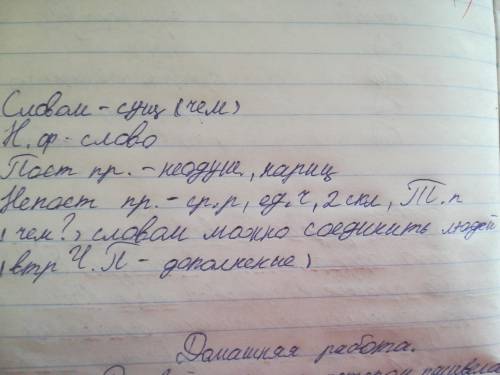 Словом - сущ (чем)
Н. ф - слово
Пост пр. - неодуш., нариц
Непост пр. - ср. р, ед. ч, 2 скл, Т. п
(чем?) словом можно соединить людей
(втр Ч. П - дополнение)
Домашняя работа.